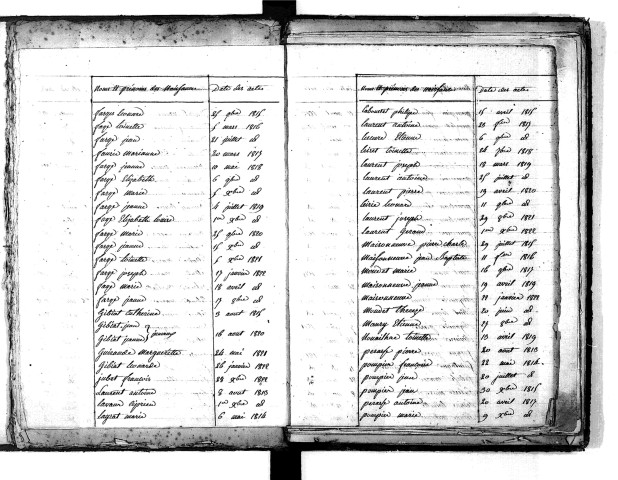 Noms et prénoms des Naissances Date des actes
farges Léonard 25 9bre 1815
farge toinette 5 mars 1816
farge jean 21 juillet id
faurie Marianne 20 mars 1817
farge jeanne mai 1818
farge Elizabeth 6 9bre id
farge marie 5 xbre id
farge jeanne 4 juillet 1819
farge Elizabeth 1er xbre id
farge marie 25 9bre 1820
farge jeanne 15 xbre id
farge toinette 5 xbre 1818
farge joseph 17 janvier 1822
farge marie 18 avril id
farge jeanne 17 9bre id
Gibiat catherine 3 aout 1815
Gibiat jean
Gibiat jeanne } jumeaux 16 aout 1820
Guirande Marguerite 24 mai 1821
Gibiat Léonarde 26 janvier 1822
jubet françois 28 xbre 1822
Laurent antoine 8 aout 1813
1er xbre id
layrat marie 6 mai 1814
Noms et prénoms des naissances Date des actes
Laboutet philipe 15 avril 1815
Laurent antoine 23 1817
Lacoure Etienne 6 9bre id
Loiret toinette 24 9bre 1818
Laurent joseph 18 mars 1819
Laurent antoine 25 juillet id
Laurent pierre 19 avril 1820
Loirie Léonard 11 9bre id
Laurent joseph 29 8bre 1821
Laurent Geraud 1er xbre 1822
Maisonneuve pierre charles 29 juillet 1815
Maisonneuve jean Baptiste 11 1816
Moudet Marie 16 9bre 1817
Maisonneuve jeanne 19 avril 1819
Maisonneuve 11 janvier 1822
Moudet Thereze 20 juin id
Maury Etienne 27 8bre id
toinette 13 avril 1819
pierre 20 aout 1813
pompier françoise 22 mai 1814
pompier jean 20 juillet id
pompier jean 30 xbre 1815
antoine 20 avril 1817
pompier marie 9 xbre id